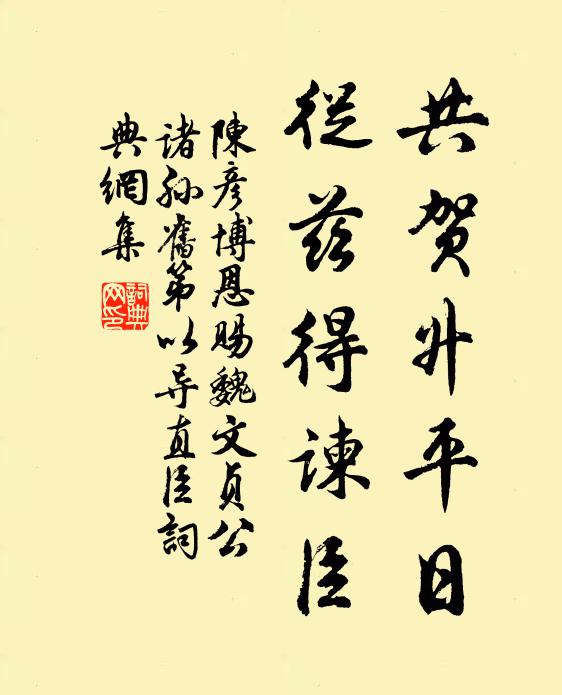 共賀升平日
從兹得諫臣
陳彦博恩賜魏文貞公
诸孙舊第以导直臣詞
典網集
詞典网印